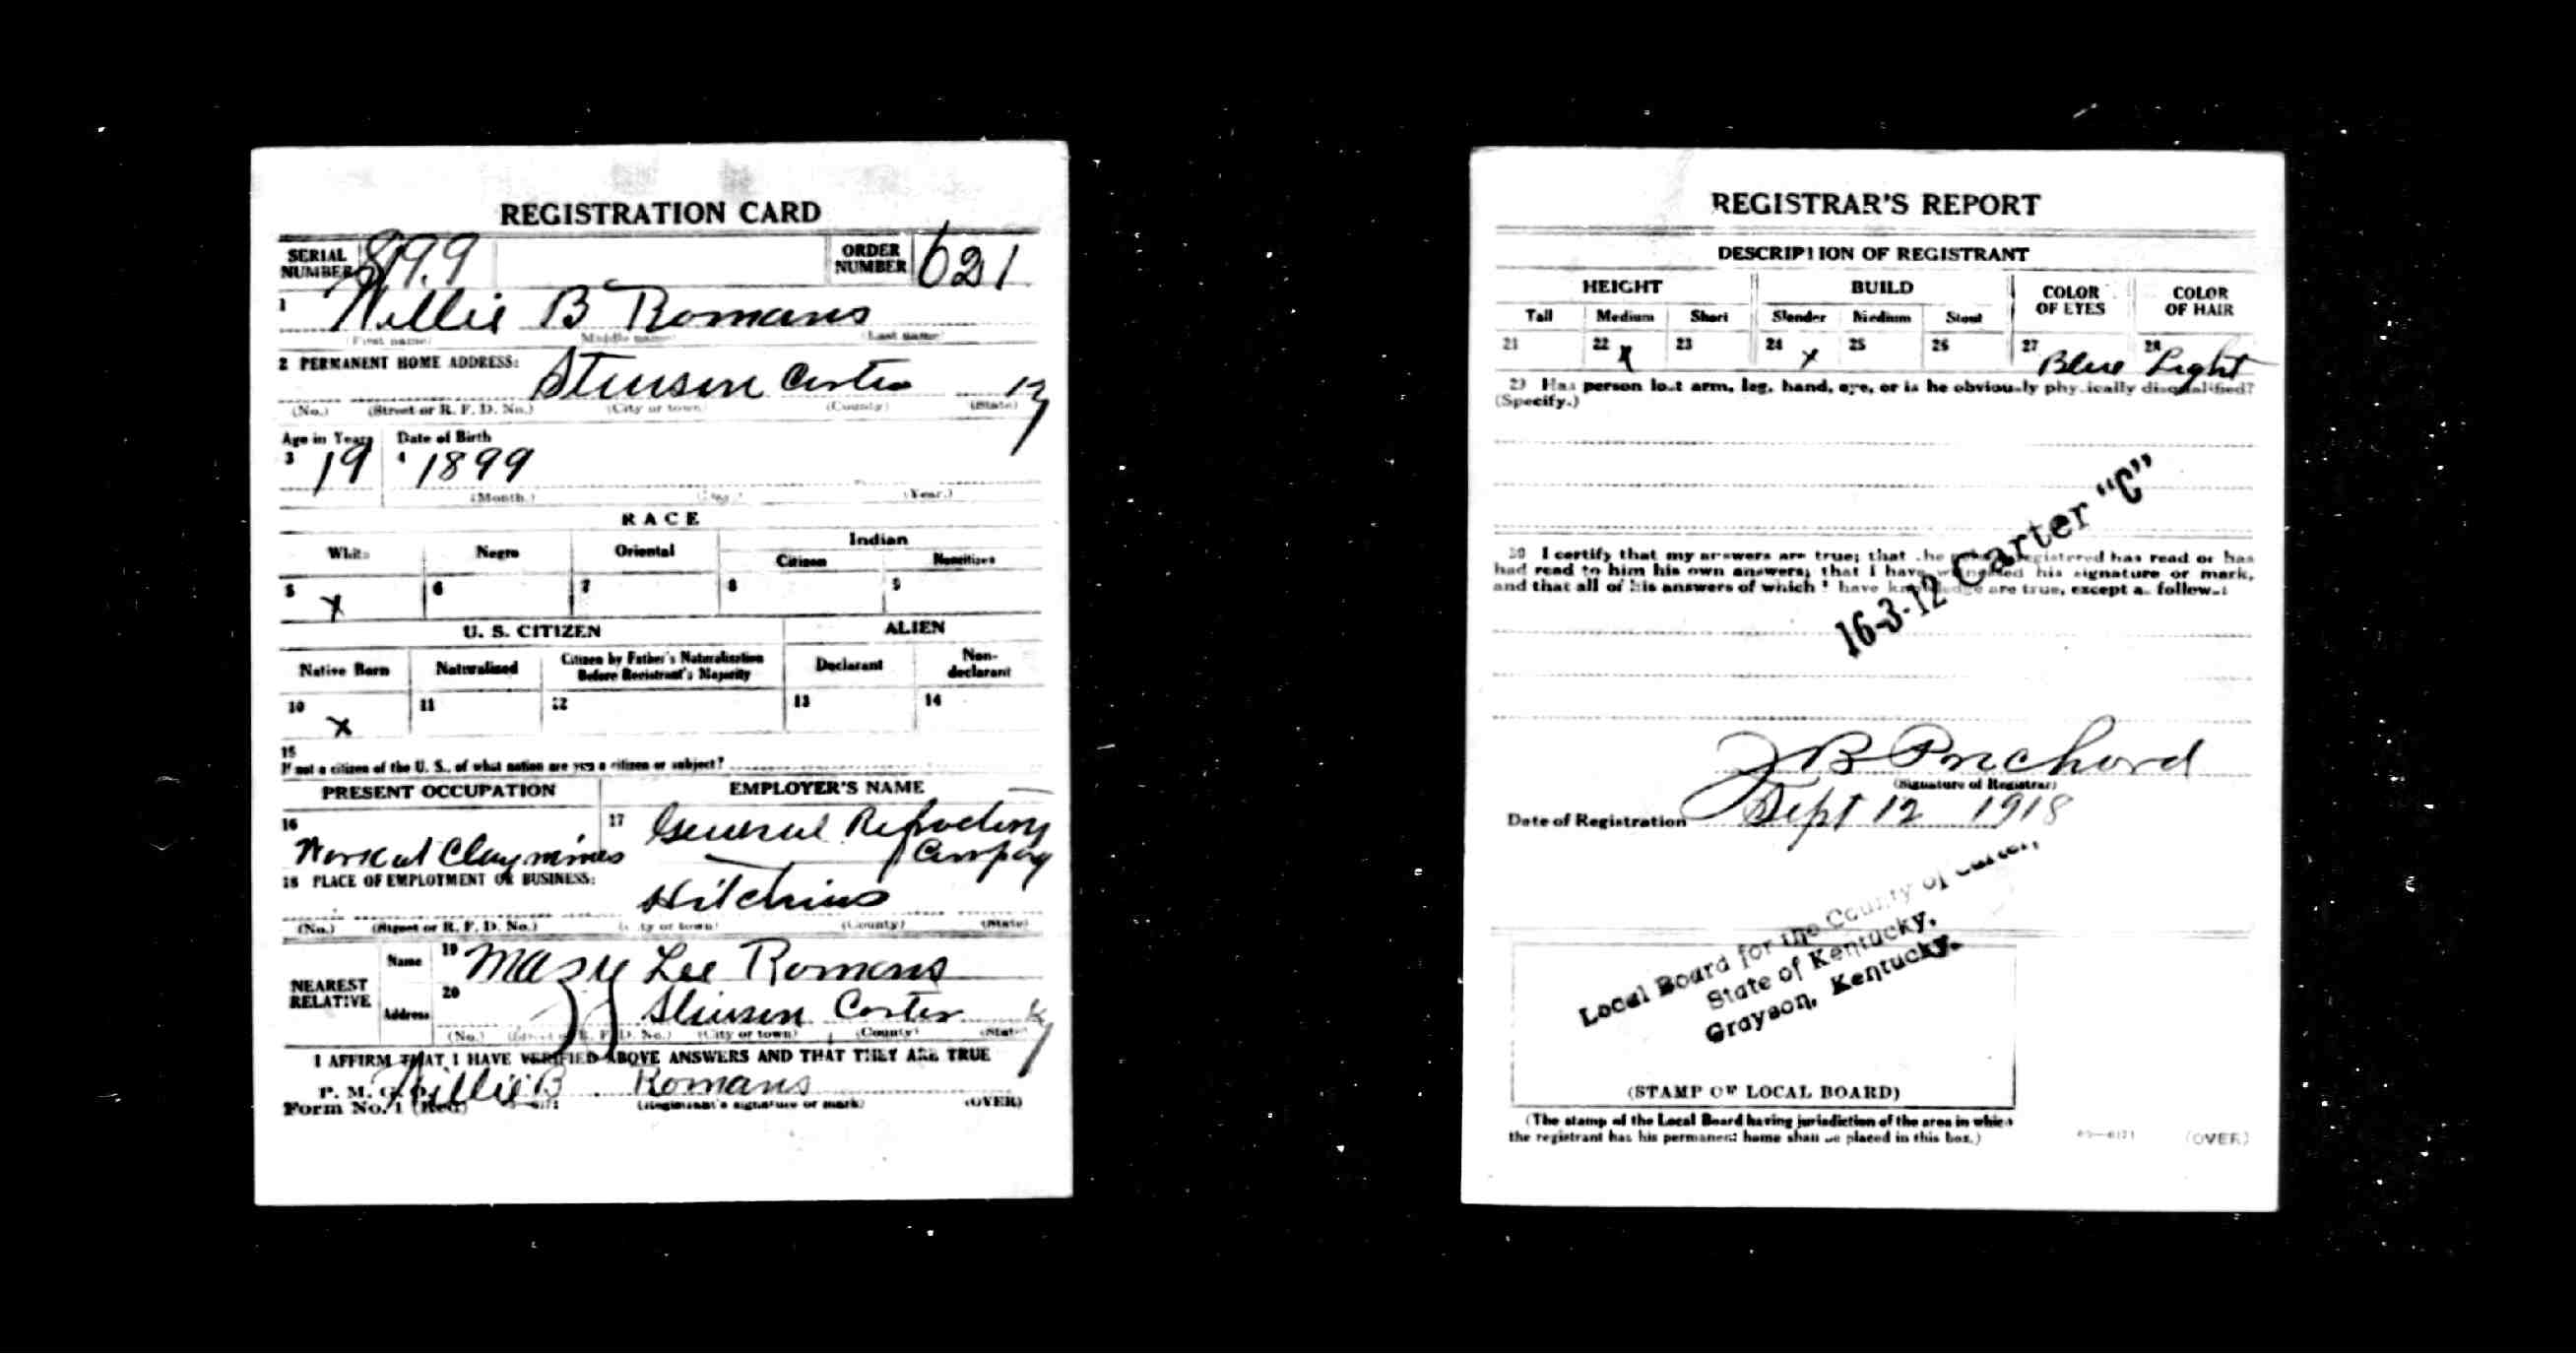 REGISTRATION CARD
SERIAL NUMBER 899 ORDER NUMBER 621
1 Willie B Romans
(First name) (Middle name) (Last name)
2 PERMANENT HOME ADDRESS: Stinson Carter Ky
(No.) (Street or R. F. D. No.) (City or town) (County) (State)
Age in Years Date of Birth
3 19 4 1899
(Month.) (Day.) (Year.)
RACE
White Negro Oriental Indian
Citizen Noncitizen
5 X 6 7 8 9
U. S. CITIZEN ALIEN
Native Born Naturalized Citizen by Father's Naturalization Before Registrant's Majority Declarant Non-declarant
10 X 11 12 13 14
15
If not a citizen of the U. S., of what nation are you a citizen or subject?
PRESENT OCCUPATION EMPLOYER'S NAME
16 Work at Clay mines 17 General Refractory Company
18 PLACE OF EMPLOYMENT OR BUSINESS:
Hitchins
(No.) (Street or R. F. D. No.) (City or town) (County) (State)
NEAREST RELATIVE Name 19 Mary Lee Romans
Address 20 Stinson Carter Ky
(No.) (Street or R. F. D. No.) (City or town) (County) (State)
I AFFIRM THAT I HAVE VERIFIED ABOVE ANSWERS AND THAT THEY ARE TRUE
P. M. G. O. Willie B Romans
Form No. 1 (Red) (Registrant's signature or mark) (OVER)
REGISTRAR'S REPORT
DESCRIPTION OF REGISTRANT
HEIGHT BUILD COLOR OF EYES COLOR OF HAIR
Tall Medium Short Slender Medium Stout
21 22 X 23 24 X 25 26 27 Blue 28 Light
29 Has person lost arm, leg, hand, eye, or is he obviously physically disqualified?
(Specify.)
16-3-12 Carter "C"
30 I certify that my answers are true; that the person registered has read or has
had read to him his own answers; that I have witnessed his signature or mark,
and that all of his answers of which I have knowledge are true, except as follows:
J B Prichard
(Signature of Registrar)
Date of Registration Sept 12 1918
Local Board for the County of Carter,
State of Kentucky.
Grayson, Kentucky.
(STAMP OF LOCAL BOARD)
(The stamp of the Local Board having jurisdiction of the area in which
the registrant has his permanent home shall be placed in this box.)
(OVER)